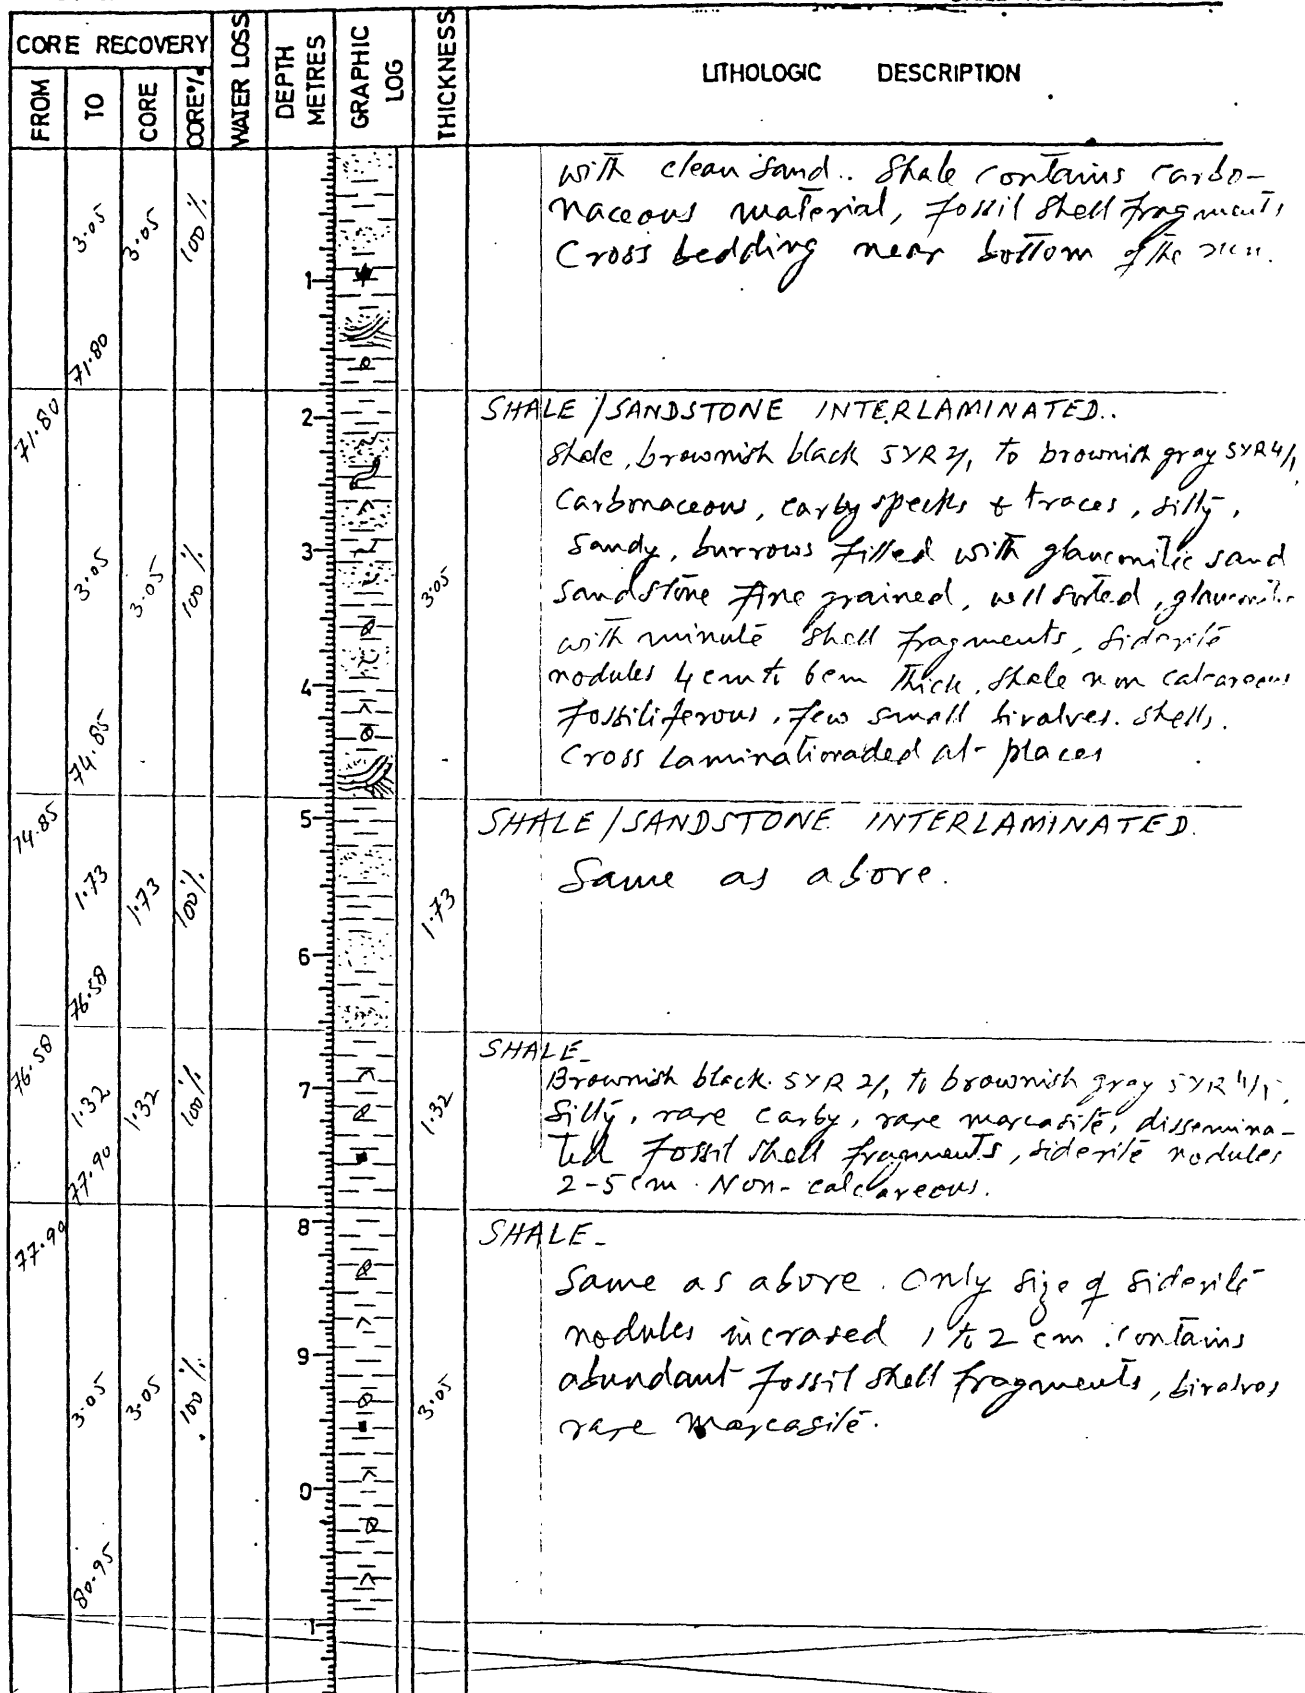 CORE RECOVERY
FROM
TO
CORE
CORE%
WATER LOSS
DEPTH METRES
GRAPHIC LOG
THICKNESS
LITHOLOGIC DESCRIPTION
3.05 3.05 100%
71.80
1
with clean sand.. Shale contains carbo-
naceous material, fossil shell fragments,
Cross bedding near bottom of the run.
71.80
2
3
4
3.05 3.05 100% 3.05
74.85
SHALE/SANDSTONE INTERLAMINATED..
Shale, brownish black 5YR2/1 to brownish gray 5YR4/1
Carbonaceous, carby specks & traces, silty,
Sandy, burrows filled with glauconitic sand
Sandstone fine grained, well sorted, glauconitic
with minute shell fragments, siderite
nodules 4cm to 6cm thick, shale non calcareous
fossiliferous, few small bivalves. shells.
Cross at places
74.85
5
6
1.73 1.73 100% 1.73
76.58
SHALE/SANDSTONE INTERLAMINATED.
Same as above.
76.58
7
1.32 1.32 100% 1.32
77.90
SHALE-
Brownish black. 5YR 2/1 to brownish gray 5YR 4/1,
Silty, rare carby, rare marcasite, dissemina-
ted fossil shell fragments, siderite nodules
2-5cm. Non-calcareous.
77.90
8
9
0
1
3.05 3.05 100% 3.05
80.95
SHALE-
Same as above. Only size of siderite
nodules incrased 1 to 2 cm. contains
abundant fossil shell fragments, bivalves
rare marcasite.